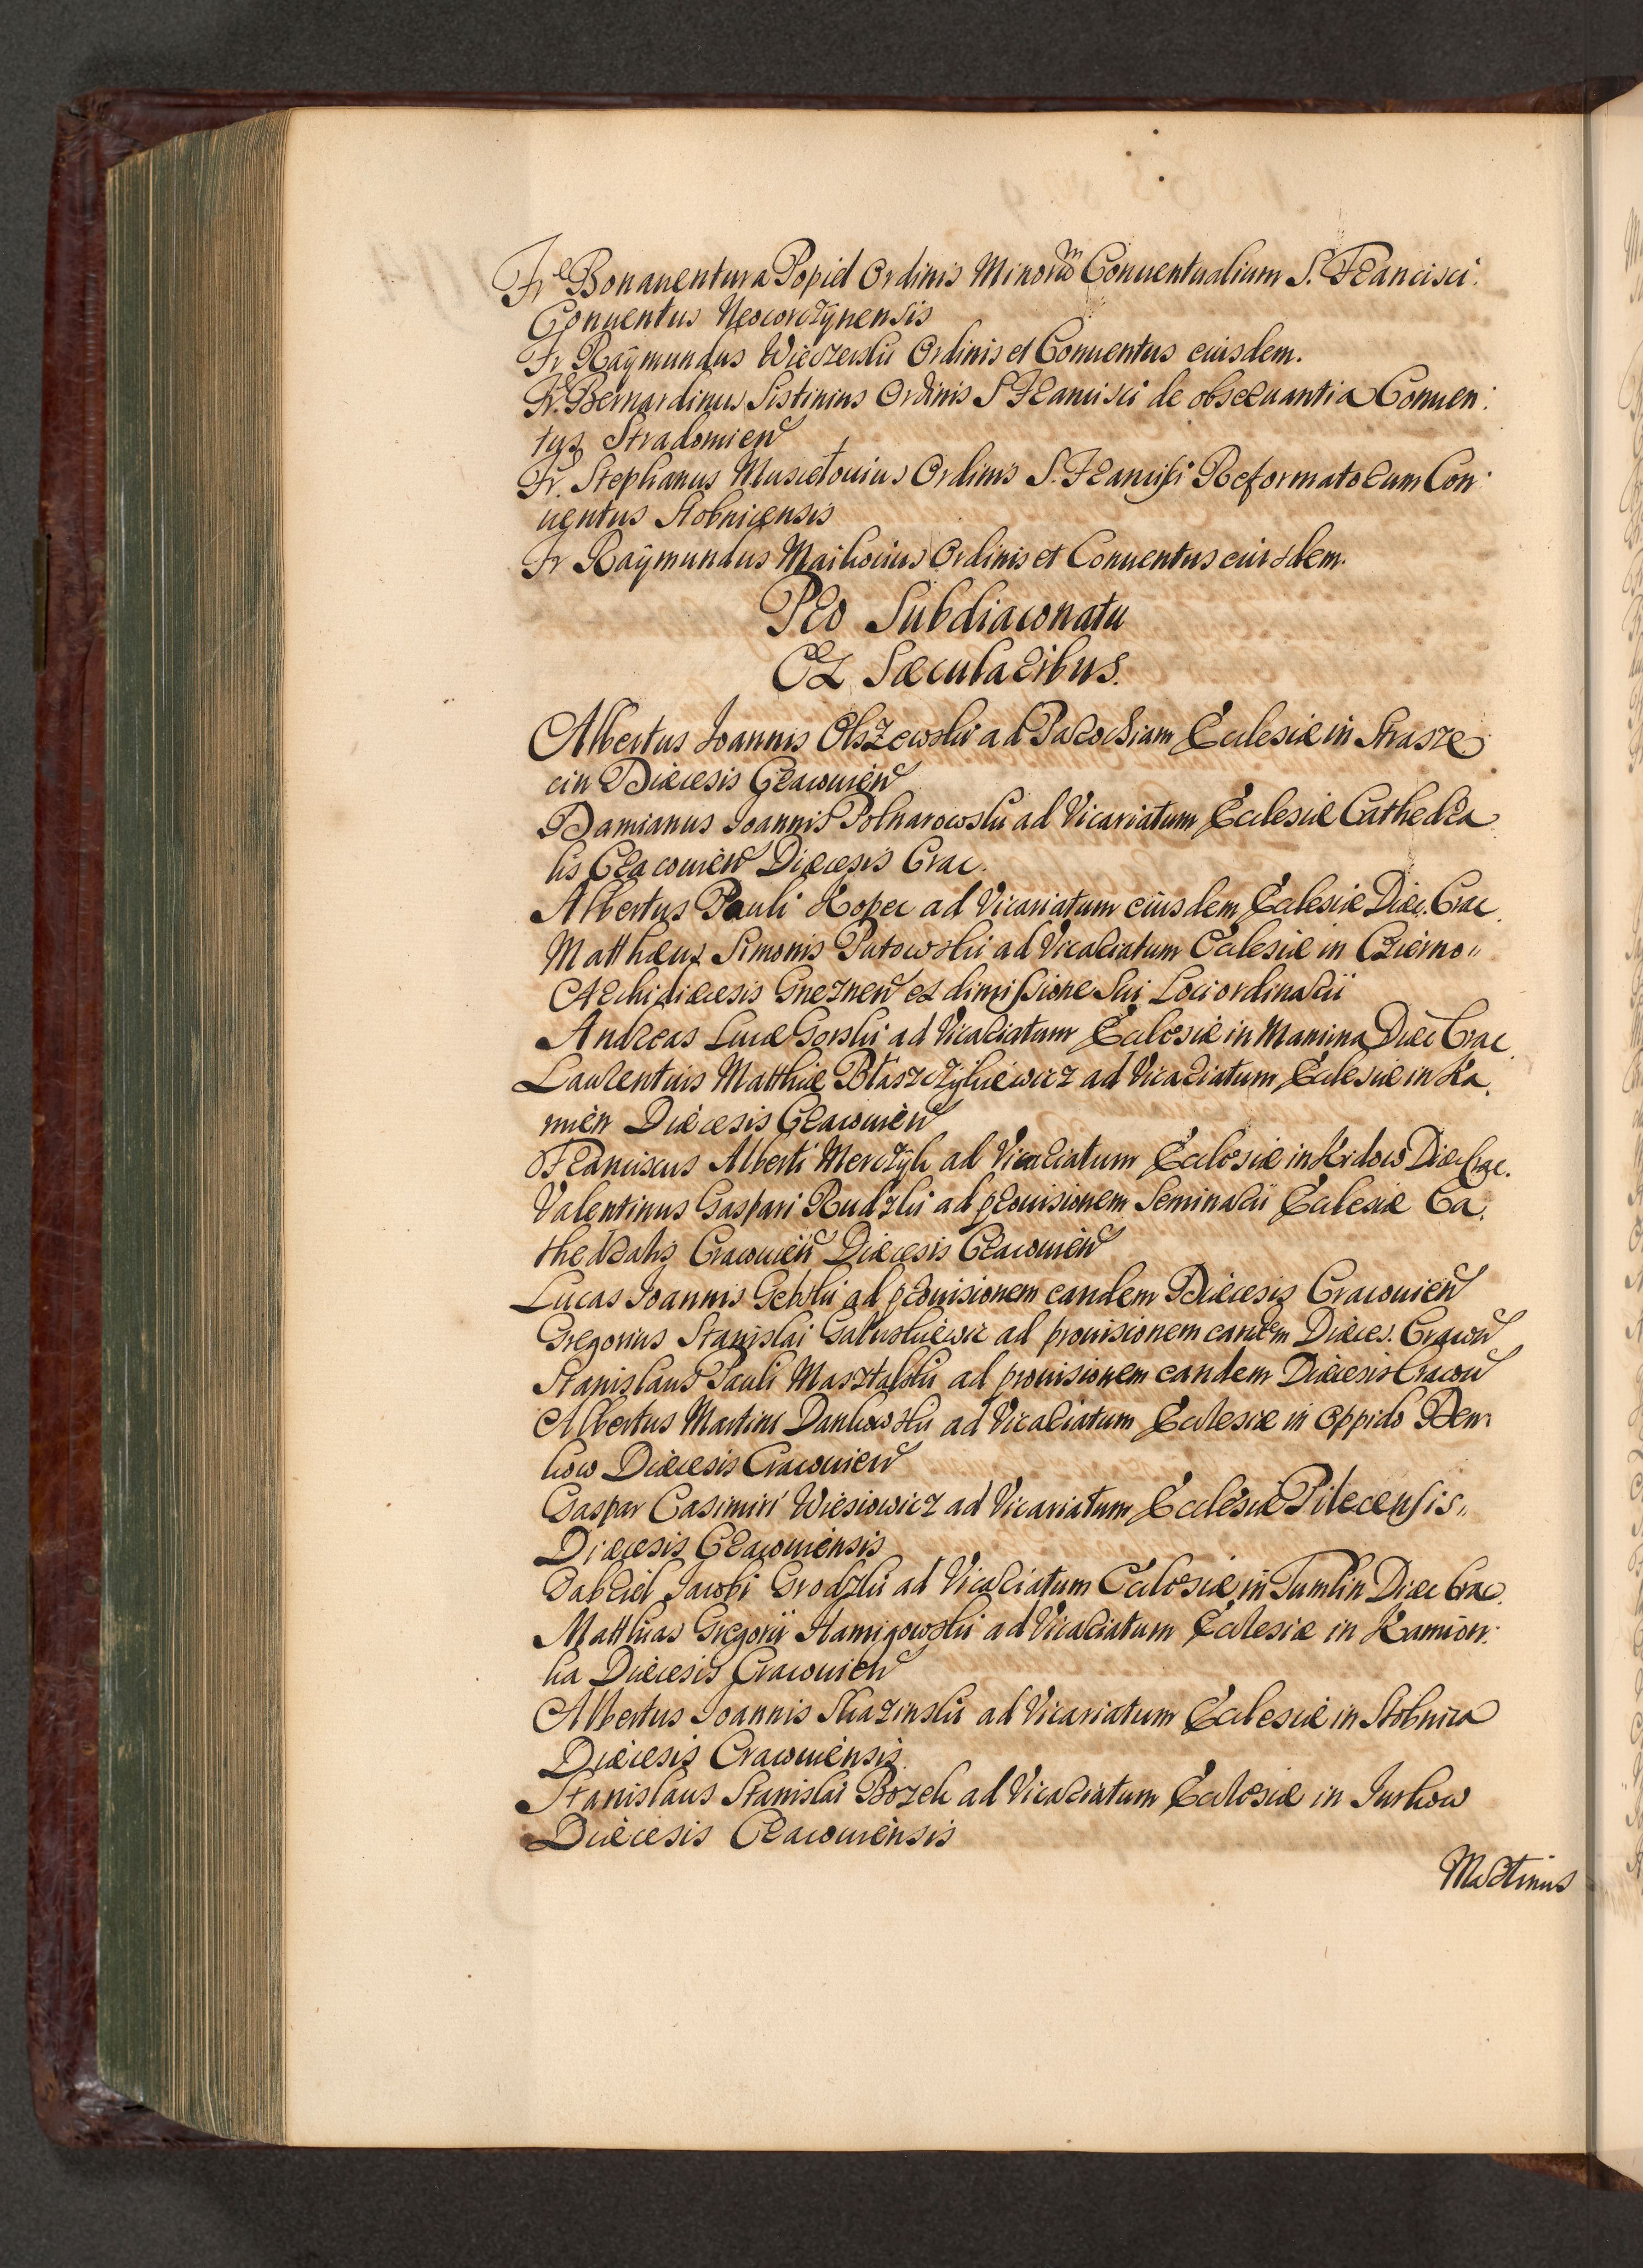 Fr Bonauentura Popiel Ordinis Minorum Conuentualium S. Francisci
Conuentus Neocorczÿnensis
Fr Raÿmundus Wieczerski Ordinis et Conuentus eiusdem.
Fr. Bernardinus Sistinius Ordinis S Francisci de obseruantia Conuen:
tus Stradomien
Fr. Stephanus Ordinis S. Francisci Reformatorum Con:
uentus Stobnicensis
Fr Raÿmundus Ordinis et Conuentus eiusdem.
Pro Subdiaconatu
Ex Sæcularibus.
Albertus Joannis Olszewski ad Parochiam Ecclesiæ in Strasze
cin Diæcesis Cracouien
Damianus Joannis Polnarowski ad Vicariatum Ecclesiæ Cathedra
lis Cracouien Diæcesis Crac.
Albertus Pauli Kopec ad Vicariatum eiusdem Ecclesiæ Diæc. Crac.
Matthæus Simonis Putowski ad Vicariatum Ecclesiæ in Czierno"
Archidiæcesis Gneznen ex dimissione sui Loci ordinarii
Andreas Lucæ Gorski ad Vicariatum Ecclesiæ in Manina Diæc Crac.
Laurentius Matthiæ Błaszczÿkiewicz ad Vicariatum Ecclesiæ in Ka.
mien Diæcesis Cracouien
Franciscus Alberti Merczÿk ad Vicariatum Ecclesiæ in Xidow Diæc Crac.
Valentinus Gaspari Rudzki ad prouisionem Seminarii Ecclesiæ Ca.
thedralis Cracouien Diæcesis Cracouien
Lucas Joannis ad prouisionem eandem Diæcesis Cracouien
Gregorius Stanislai Galuskiewic ad prouisionem eandem Diæces. Cracou
Stanislaus Pauli Masztalski ad prouisionem eandem Diæcesis Cracou
Albertus Martini Dankowski ad Vicariatum Ecclesiæ in oppido Den
kow Diæcesis Cracouien
Gaspar Casimiri Wiesiowicz ad Vicariatum Ecclesiæ Pilecensis"
Diæcesis Cracouiensis
Gabriel Jacobi Grodzki ad Vicariatum Ecclesiæ in Tumlin Diæc Crac.
Matthias Gregorii Stamigowski ad Vicariatum Ecclesiæ in Kamion:
ka Diæcesis Cracouien
Albertus Joannis Skazinski ad Vicariatum Ecclesiæ in Stobnica
Diæcesis Cracouiensis
Stanislaus Stanislai Bozek ad Vicariatum Ecclesiæ in Jurkow
Diæcesis Cracouiensis
Martinus